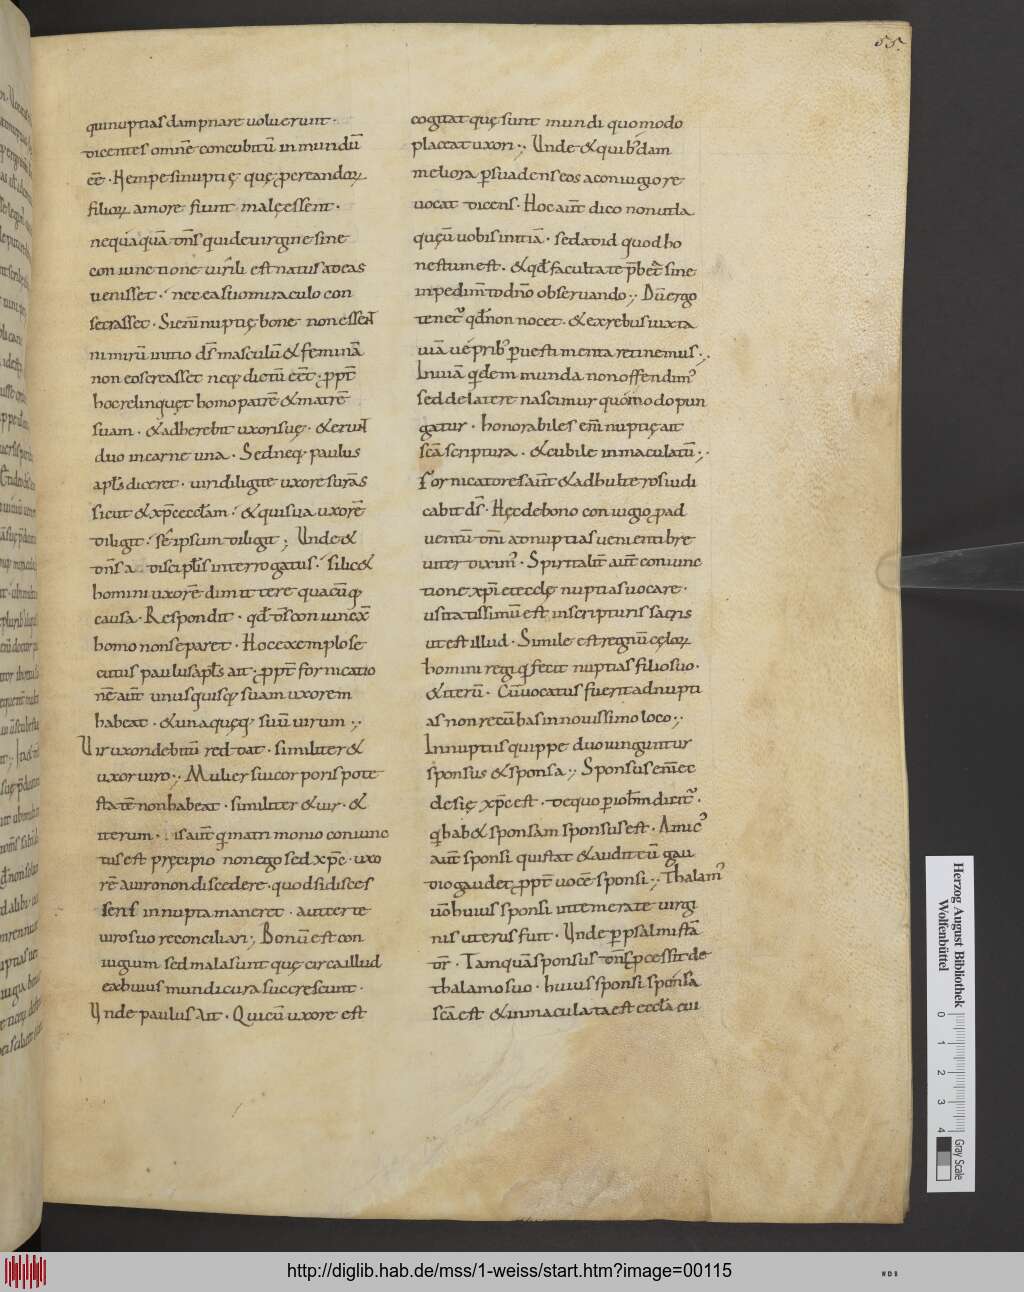 55.
quinuptias dampnare uoluerunt·
dicentes omnē concubitū inmundū
eē· Nempe sinuptię quę ꝓcreandoꝝ
filioꝝ amore fiunt malę essent·
nequaquā dn̄s quideuirgine sine
coniunctione uirili est natus adeas
uenisset· nec easuo miraculo con
secrasset· Sienī nuptię bonę non essent
nimirū initio ds̄ masculū & feminā
non eos creasset neq; dictū eēt· ꝓpt̄
hoc relinquęt homo patrē & matrē
suam· & adherebit uxori suę· & erunt
duo incarne una· Sed neq; paulus
apl̄s diceret· uiri diligite uxores uras
sicut & xp̄c eccl̄am· & qui sua uxorē
diligit· sēipsum diligit; Unde &
dn̄s a discipl̄is interrogatus· si lic&
homini uxorē dimittere quacūq;
causa· Respondit· qd̄ ds̄ coniunex̄
homo nonseparet· Hoc exemplo se
cutus paulus apl̄s ait· ꝓpt̄ fornicatio
nē aut̄ unusquisq; suam uxorem
habeat· & unaquęq; suū uirum;
Vir uxori debitū reddat· similiter &
uxor uiro; Mulier sui corporis pote
statē non habeat· similiter & uir· &
iterum· isaut̄ qi matrimonio coniunc
tis est pręcipio non ego sed xp̄c· uxo
rē auiro non discedere· quod si disces
serit innupta maneret· aut certe
uiro suo reconciliari; Bonū est con
iugium sed mala sunt quę circa illud
exhuius mundi cura succrescunt·
Unde paulus Ait· Qui cū uxore est
cogitat quę sunt mundi quomodo
placeat uxori; Unde & quibꝰdam
meliora ꝑsuadens eos aconiugio re
uocat dicens· Hoc aut̄ dico non utla
quęū uobis iniciā· sed adid quod ho
nestum est· & qd̄ facultatē p̄bet sine
inpedim̄to dn̄o obseruando; Dū ergo
tenetꝰ qd̄ non nocet· & exrebus iuxta
uiā
Inuiā qidem munda non offendimꝰ
sed de latere nascimur quomodo pun
gatur· honorabiles enī nuptię ait
scā scriptura· & cubile inmaculatū;
Fornicatores aut̄ & adhulteros iudi
cabit ds̄· Hęc debono coniugio ꝓ ad
uentū dn̄i ad nuptias uenienti bre
uiter diximꝰ· Spiritalit̄ aut̄ coniunc
tione xp̄i et ecclę nuptias uocare·
usitatissimū est inscripturis sacris
ut est illud· Simile est regnū cęloꝝ
homini regi qi fecit nuptias filio suo·
& iterū· Cū uocatus fuerit ad nupti
as non recūbas in nouissimo loco;
In nuptiis quippe duo iunguntur
sponsus & sponsa; Sponsus enī ec
clesię xp̄c est· dequo ꝑ ioh̄m dicitꝰ·
qi hab& sponsam sponsus est· Amicꝰ
aut̄ sponsi qui stat & audit cū gau
dio gaudet ꝓpt̄ uocē sponsi; Thalamꝰ
uō huius sponsi intemerate uirgi
nis uterus fuit· Unde ꝑ psalmistā
dr̄· Tamquā sponsus dn̄s ꝓcessit de
thalamo suo· huius sponsi sponsa
scā est & inmaculata est eccl̄a cui
Herzog August Bibliothek
Wolfenbüttel
0 1 2 3 4
Gray Scale
http://diglib.hab.de/mss/1-weiss/start.htm?image=00115